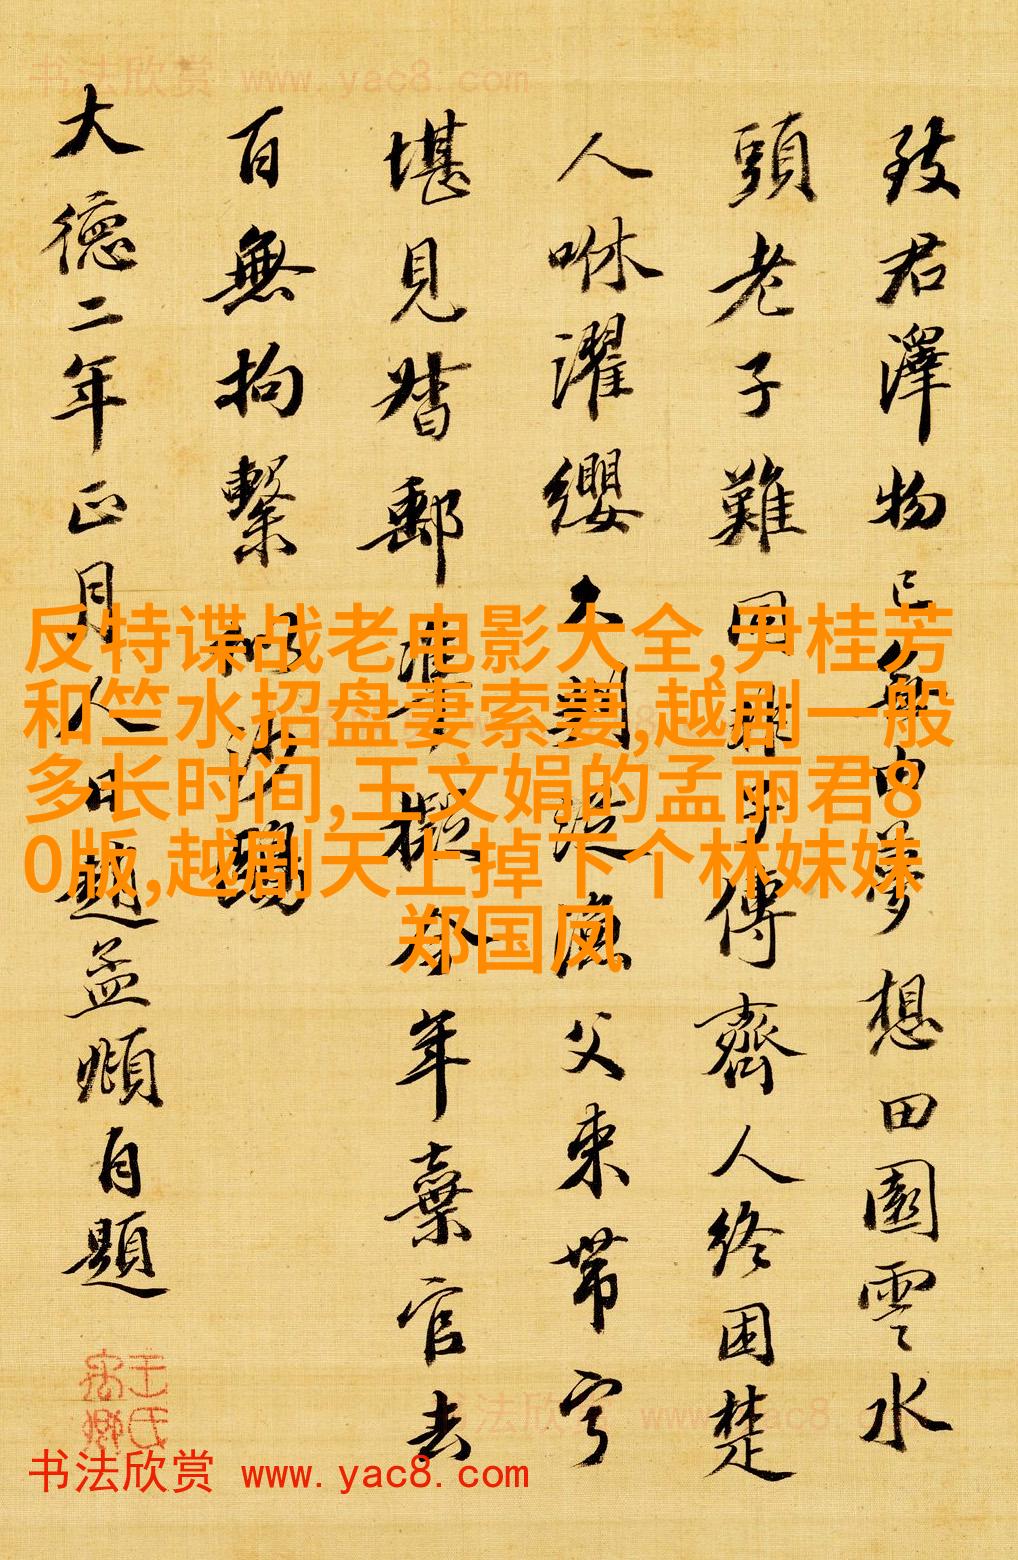 书法欣赏 www.yac8.com
致君澤物已無由夢想田園雲水
頭老子難同非子傳齊人終困楚
人咻濯纓久判從漁父束帶寧
堪見督郵準擬今年棄官去
百無拘繫似沙鷗
大德二年正月人日趙孟頫自題
反特谍战老电影大全,尹桂芳
和竺水招盘妻索妻,越剧一般
多长时间,王文娟的孟丽君8
0版,越剧天上掉下个林妹妹
郑国凤
书法欣赏 www.yac8.com
书法欣赏 www.yac8.com